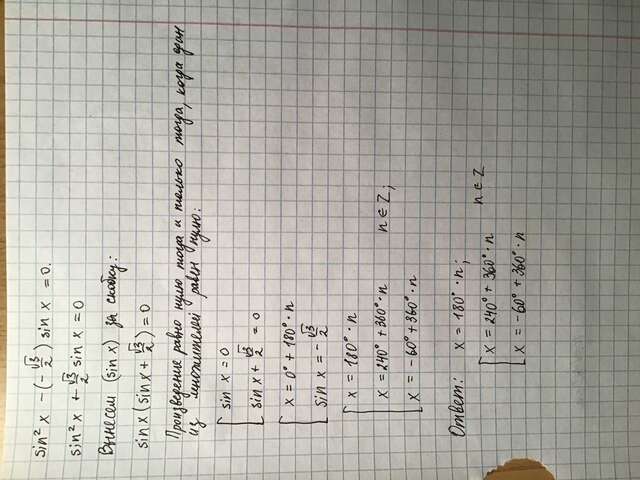 sin² x − (−√3/2) sin x = 0.
sin² x + √3/2 sin x = 0
Вынесем (sin x) за скобку:
sin x (sin x + √3/2) = 0
Произведение равно нулю тогда и только тогда, когда один
из множителей равен нулю:
[ sin x = 0
sin x + √3/2 = 0
[ x = 0° + 180° · n
sin x = − √3/2
[ x = 180° · n
x = 240° + 360° · n n ∈ Z;
x = −60° + 360° · n
Ответ: x = 180° · n;
[ x = 240° + 360° · n n ∈ Z
x = −60° + 360° · n